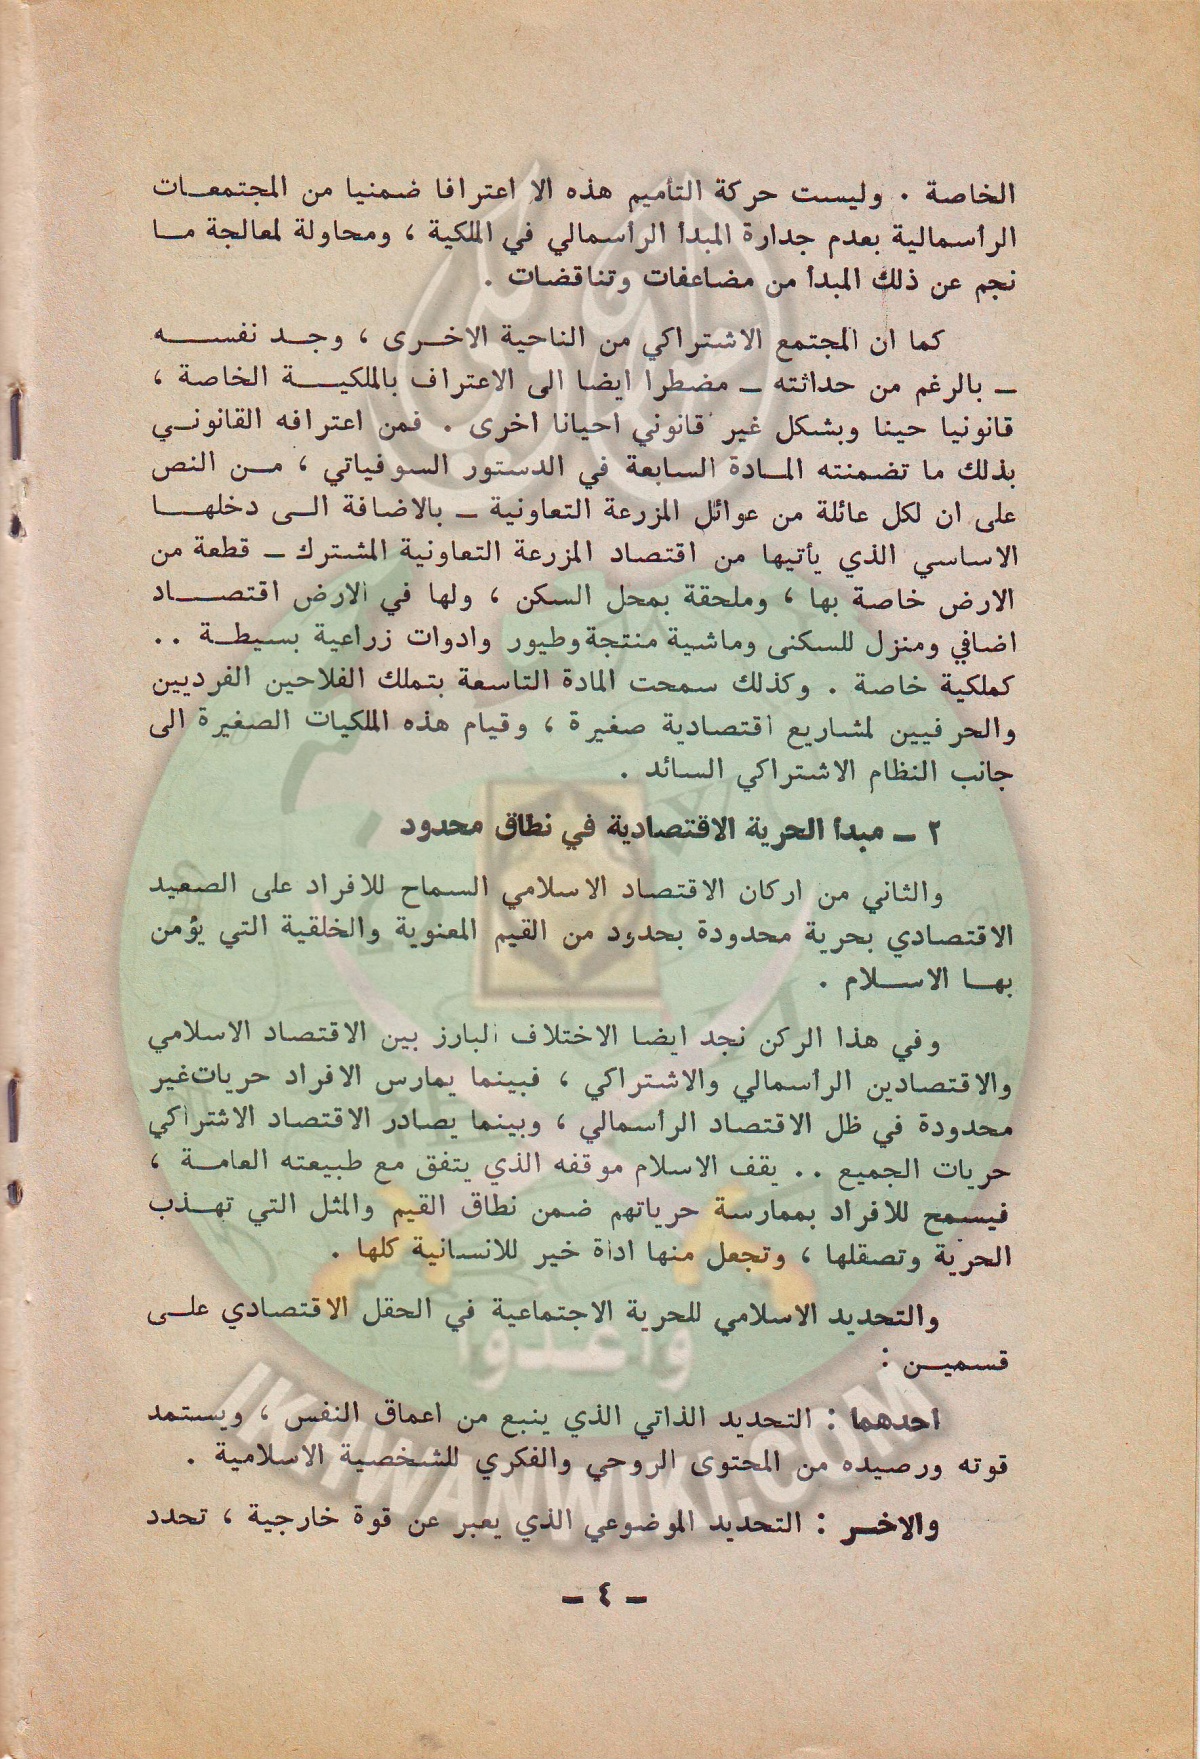 الخاصة . وليست حركة التأميم هذه الا اعترافا ضمنيا من المجتمعات
الرأسمالية بعدم جدارة المبدأ الرأسمالي في الملكية ، ومحاولة لمعالجة ما
نجم عن ذلك المبدأ من مضاعفات وتناقضات .
كما ان المجتمع الاشتراكي من الناحية الاخرى ، وجد نفسه
ـ بالرغم من حداثته ـ مضطرا ايضا الى الاعتراف بالملكية الخاصة ،
قانونيا حينا وبشكل غير قانوني احيانا اخرى . فمن اعترافه القانوني
بذلك ما تضمنته المادة السابعة في الدستور السوفياتي ، من النص
على ان لكل عائلة من عوائل المزرعة التعاونية ـ بالاضافة الى دخلها
الاساسي الذي يأتيها من اقتصاد المزرعة التعاونية المشترك ـ قطعة من
الارض خاصة بها ، وملحقة بمحل السكن ، ولها في الارض اقتصاد
اضافي ومنزل للسكنى وماشية منتجة وطيور وادوات زراعية بسيطة ..
كملكية خاصة . وكذلك سمحت المادة التاسعة بتملك الفلاحين الفرديين
والحرفيين لمشاريع اقتصادية صغيرة ، وقيام هذه الملكيات الصغيرة الى
جانب النظام الاشتراكي السائد .
٢ ـ مبدأ الحرية الاقتصادية في نطاق محدود
والثاني من اركان الاقتصاد الاسلامي السماح للافراد على الصعيد
الاقتصادي بحرية محدودة بحدود من القيم المعنوية والخلقية التي يؤمن
بها الاسلام .
وفي هذا الركن نجد ايضا الاختلاف البارز بين الاقتصاد الاسلامي
والاقتصادين الرأسمالي والاشتراكي ، فبينما يمارس الافراد حريات غير
محدودة في ظل الاقتصاد الرأسمالي ، وبينما يصادر الاقتصاد الاشتراكي
حريات الجميع .. يقف الاسلام موقفه الذي يتفق مع طبيعته العامة ،
فيسمح للافراد بممارسة حرياتهم ضمن نطاق القيم والمثل التي تهذب
الحرية وتصقلها ، وتجعل منها اداة خير للانسانية كلها .
والتحديد الاسلامي للحرية الاجتماعية في الحقل الاقتصادي على
قسمين :
احدهما : التحديد الذاتي الذي ينبع من اعماق النفس ، ويستمد
قوته ورصيده من المحتوى الروحي والفكري للشخصية الاسلامية .
والاخر : التحديد الموضوعي الذي يعبر عن قوة خارجية ، تحدد
ـ ٤ ـ
وأعدوا
IKHWANWIKI.COM